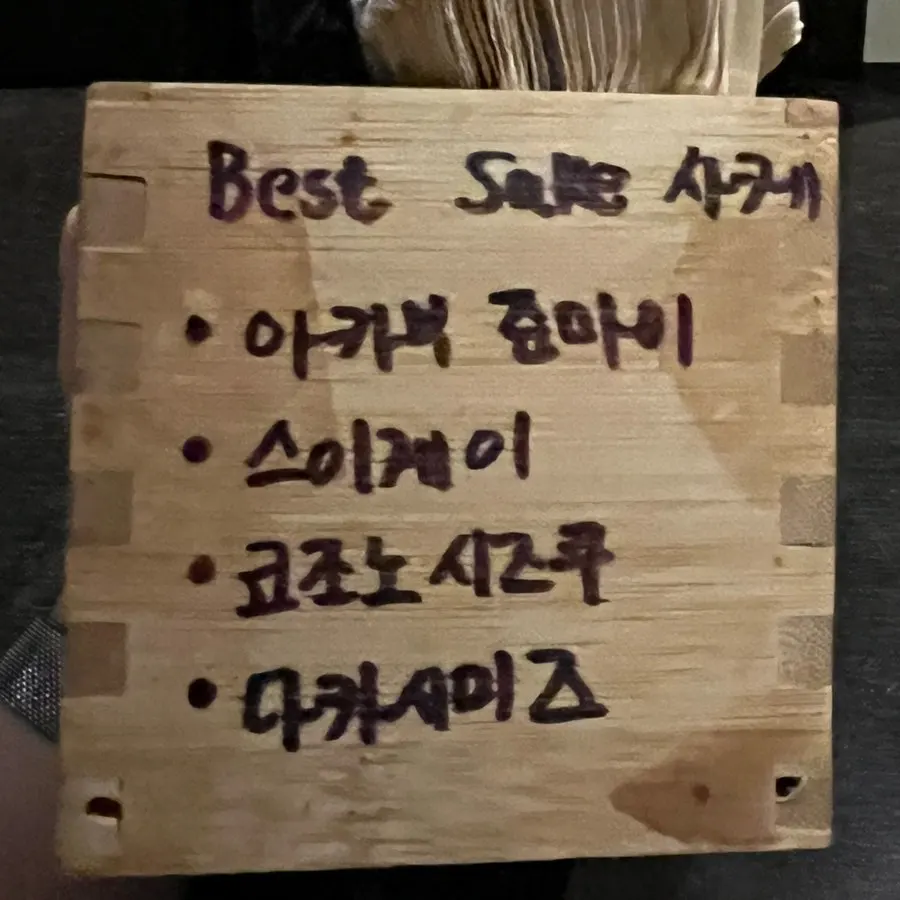 Best Sake 사케
• 아카부 쥰마이
• 스이게이
• 코조노 시즈쿠
• 다카시미즈